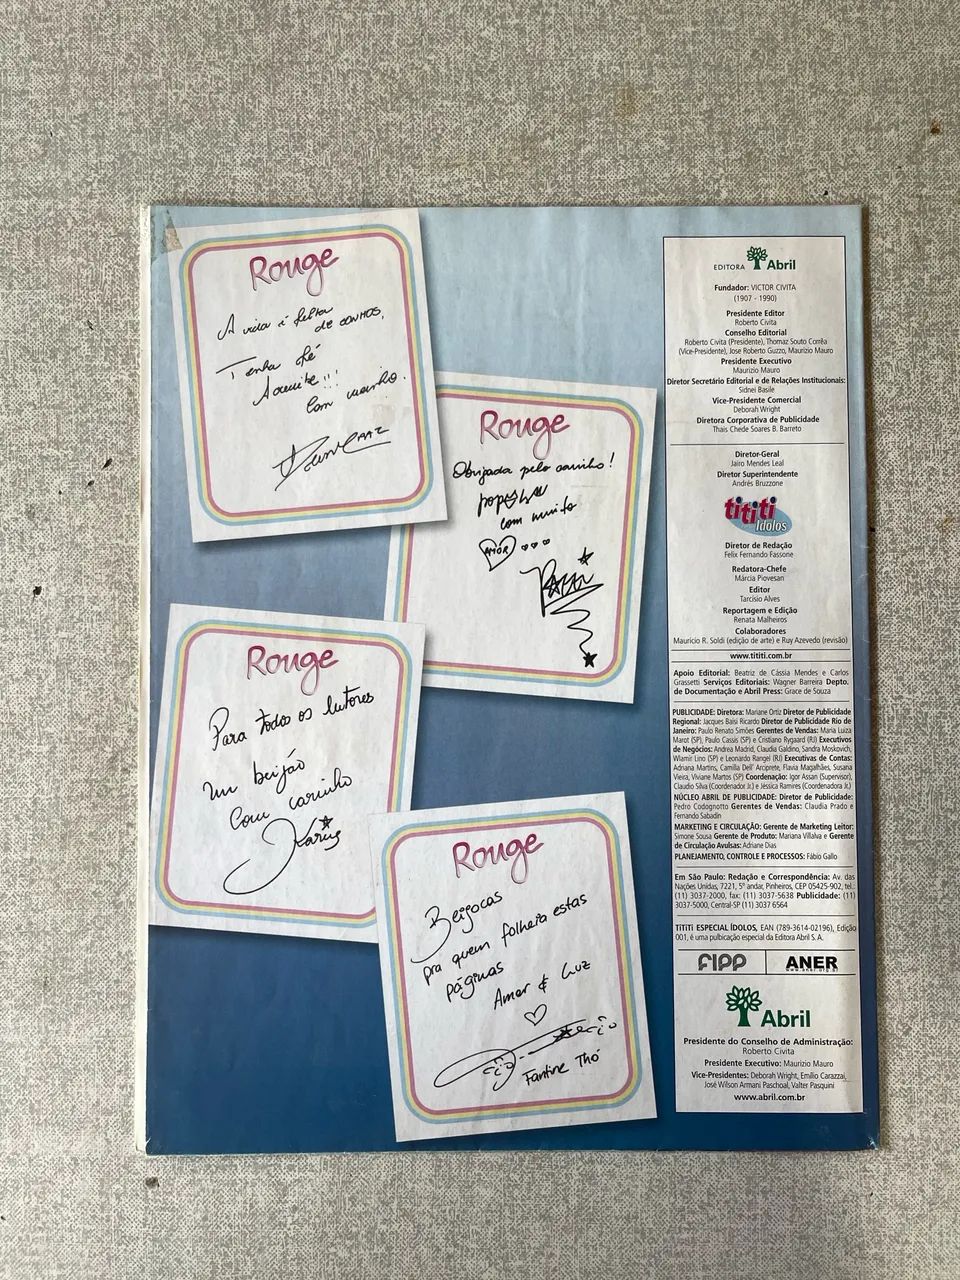 Rouge
A vida é feita
de sonhos,
Tenha fé
Acredite!!!
Com carinho.
Rouge
Obrigada pelo carinho!
com muito
AMOR...
Rouge
Para todos os leitores
um beijão
com carinho
Karin
Rouge
Beijocas
pra quem folheia estas
páginas
Amor & Luz
Fantine Thó
EDITORA Abril
Fundador: VICTOR CIVITA
(1907 - 1990)
Presidente Editor
Roberto Civita
Conselho Editorial
Roberto Civita (Presidente), Thomaz Souto Corrêa
(Vice-Presidente), Jose Roberto Guzzo, Maurizio Mauro
Presidente Executivo
Maurizio Mauro
Diretor Secretário Editorial e de Relações Institucionais:
Sidnei Basile
Vice-Presidente Comercial
Deborah Wright
Diretora Corporativa de Publicidade
Thais Chede Soares B. Barreto
Diretor-Geral
Jairo Mendes Leal
Diretor Superintendente
Andrés Bruzzone
tititi
Ídolos
Diretor de Redação
Felix Fernando Fassone
Redatora-Chefe
Márcia Piovesan
Editor
Tarcisio Alves
Reportagem e Edição
Renata Malheiros
Colaboradores
Mauricio R. Soldi (edição de arte) e Ruy Azevedo (revisão)
www.tititi.com.br
Apoio Editorial: Beatriz de Cássia Mendes e Carlos
Grassetti Serviços Editoriais: Wagner Barreira Depto.
de Documentação e Abril Press: Grace de Souza
PUBLICIDADE: Diretora: Mariane Ortiz Diretor de Publicidade
Regional: Jacques Baisi Ricardo Diretor de Publicidade Rio de
Janeiro: Paulo Renato Simões Gerentes de Vendas: Maria Luiza
Marot (SP), Paulo Cassis (SP) e Cristiano Rygaard (RJ) Executivos
de Negócios: Andrea Madrid, Claudia Galdino, Sandra Moskovich,
Wlamir Lino (SP) e Leonardo Rangel (RJ) Executivas de Contas:
Adriana Martins, Camilla Dell' Arciprete, Flavia Magalhães, Susana
Vieira, Viviane Martos (SP) Coordenação: Igor Assan (Supervisor),
Claudio Silva (Coordenador Jr.) e Jéssica Ramires (Coordenadora Jr.)
NÚCLEO ABRIL DE PUBLICIDADE: Diretor de Publicidade:
Pedro Codognotto Gerentes de Vendas: Claudia Prado e
Fernando Sabadin
MARKETING E CIRCULAÇÃO: Gerente de Marketing Leitor:
Simone Sousa Gerente de Produto: Mariana Villalva e Gerente
de Circulação Avulsas: Adriane Dias
PLANEJAMENTO, CONTROLE E PROCESSOS: Fábio Gallo
Em São Paulo: Redação e Correspondência: Av. das
Nações Unidas, 7221, 5º andar, Pinheiros, CEP 05425-902, tel.:
(11) 3037-2000, fax: (11) 3037-5638 Publicidade: (11)
3037-5000, Central-SP (11) 3037 6564
TiTiTi ESPECIAL ÍDOLOS, EAN (789-3614-02196), Edição
001, é uma pulbicação especial da Editora Abril S. A.
FIPP ANER
www.aner.org.br
Abril
Presidente do Conselho de Administração:
Roberto Civita
Presidente Executivo: Maurizio Mauro
Vice-Presidentes: Deborah Wright, Emílio Carazzai,
José Wilson Armani Paschoal, Valter Pasquini
www.abril.com.br